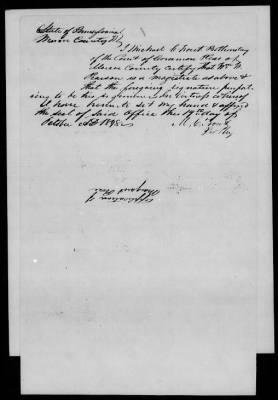 State of Pennsylvania
Mercer County SS
I Michael C Trout Prothonotary
of the Court of Common Pleas of
Mercer County Certify that Wm
Pearson is a magistrate as above &
that the foregoing signature purpor
ting to be his is genuine In testimony whereof
I have hereunto set my hand & affixed
the seal of Said Office this 19th day of
October AD 18
M. C. Trout
Prothy
Application of
Margaret